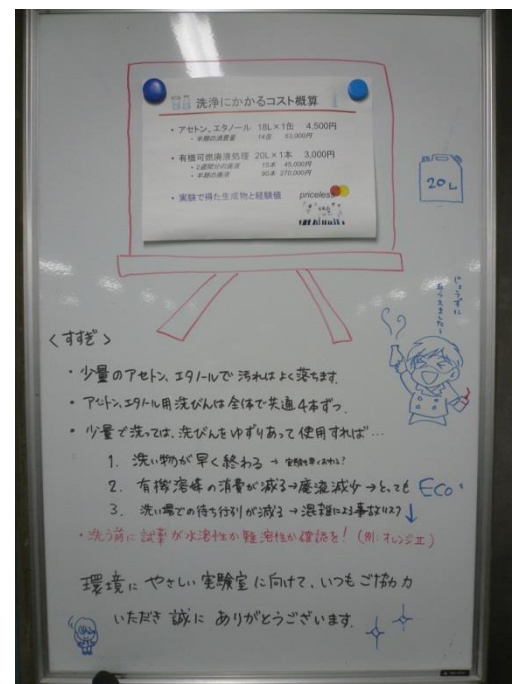 洗浄にかかるコスト概算
・アセトン、エタノール 18L×1缶 4,500円
・半期の消費量 14缶 63,000円
・有機可燃廃液処理 20L×1本 3,000円
・2週間分の廃液 15本 45,000円
・半期の廃液 90本 270,000円
・実験で得た生成物と経験値 priceless
20L
じょうずに
あらえました〜
<すすぎ>
・少量のアセトン、エタノールで 汚れはよく落ちます.
・アセトン、エタノール用洗びんは全体で共通4本ずつ.
・少量で洗っては、洗びんをゆずりあって使用すれば…
1. 洗い物が早く終わる → 実験も早くおわる?
2. 有機溶媒の消費が減る→廃液減少→とっても ECO
3. 洗い場での待ち行列が減る → 混雑による事故リスク↓
・洗う前に試薬が水溶性か難溶性か確認を! (例:オレンジⅡ)
環境に やさしい実験室に向けて、いつもご協力
いただき 誠に ありがとうございます.